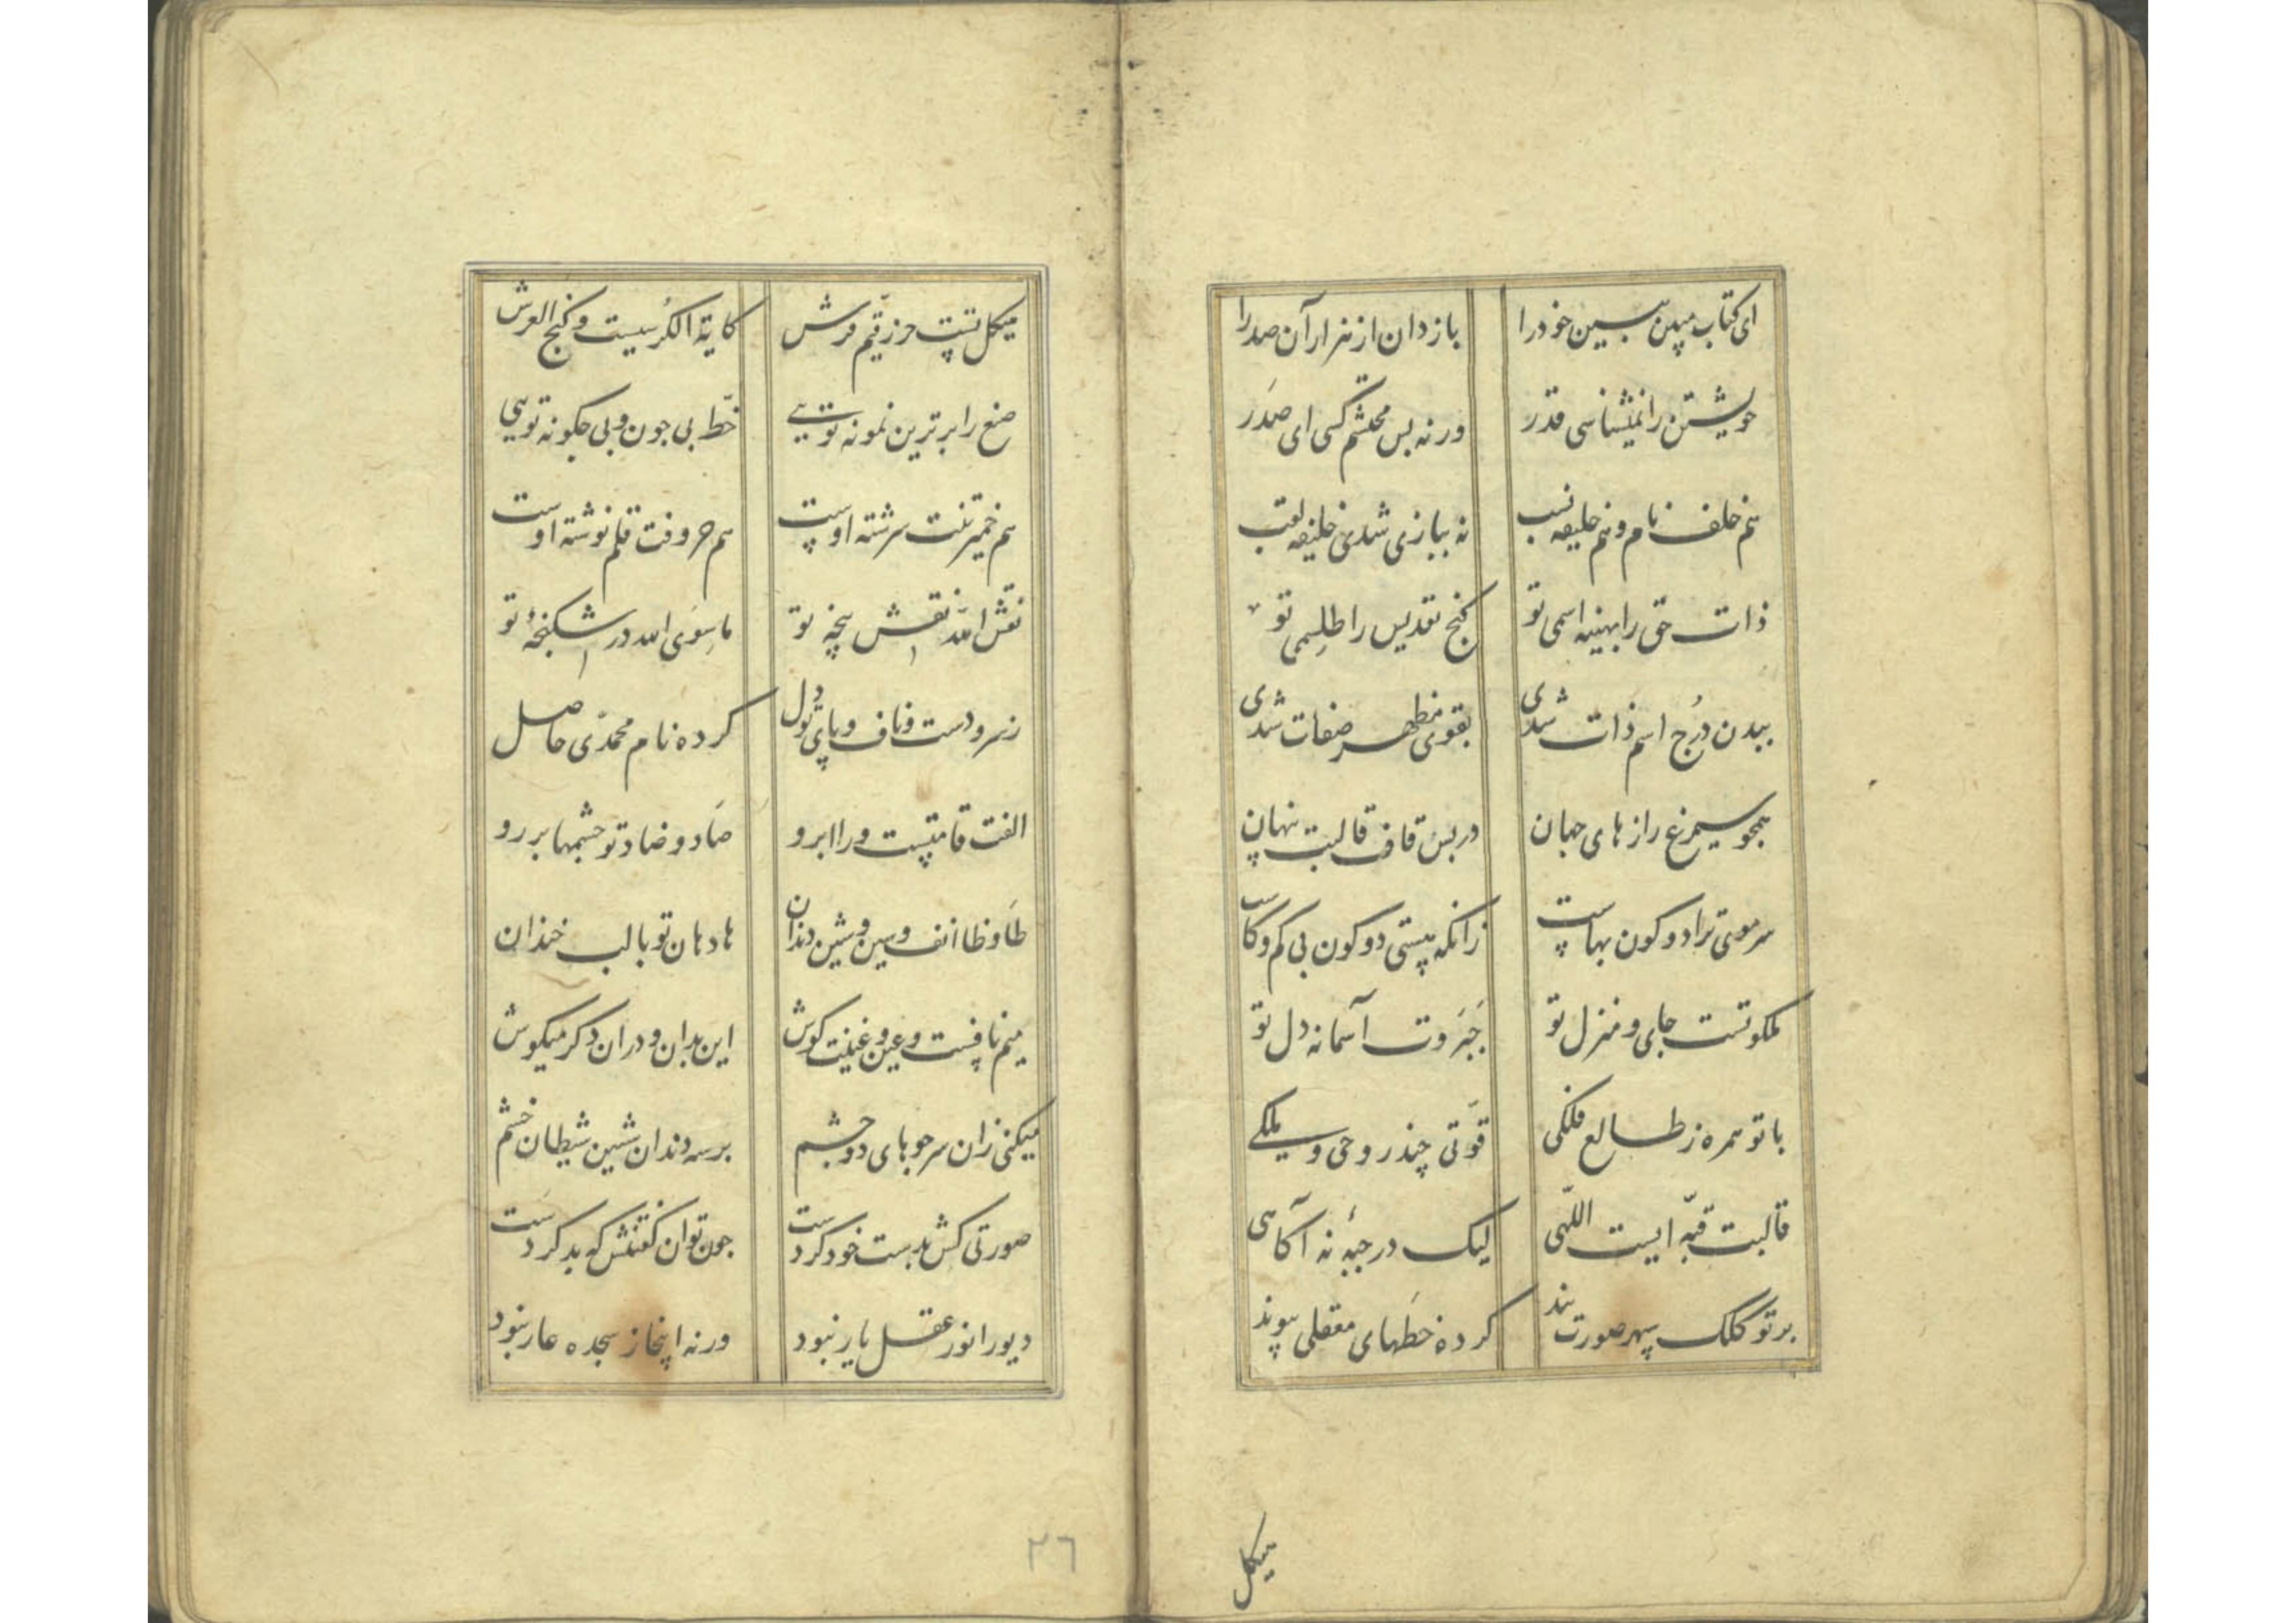 ای کتاب مبین ببین خود را باز دان از هزار آن صد را
خویشتن را نمیشناسی قدر ورنه بس محتشم کسی ای صدر
هم خلف نام و هم خلیفه نسب نه ببازی شدی خلیفه لقب
ذات حق را بهینه اسمی تو کنج تقدیس را طلسمی تو
ببدن درج اسم ذات شدی بقوی مظهر صفات شدی
همجو سیمرغ رازهای جهان در پس قاف قالبت پنهان
سر موئی ترا دو کون بهاست زانکه هستی دو کون بی کم و کاست
ملکوتست جای و منزل تو جبروت آسمانه دل تو
با تو همره ز طالع فلکی قوتی چند روحی و ملکی
قالبت قبّه ایست اللّهی لیک در جبّه نه آکاهی
بر تو کلک سپهر صورت بند کرده خطهای معقلی پیوند
هیکل
هیکل تست حرز قیّم فرش کایة الکرسیست و کنج العرش
صنع را برترین نمونه تویی خطّ بی جون و بی جکونه تویی
هم خمیر تنت سرشته اوست هم حروفت قلم نوشته اوست
نقش اللّه نقش پنجه تو ما سوی الله در اشکنجهٔ تو
ز سر و دست و ناف و پای تو دل کرده نام محمّدی حاصل
الفت قامتیست ورا ابرو صاد و ضاد تو جشمها بر رو
طا و ظا انف و سین و شین دندان ها دهان تو با لب خندان
میم نافست و عین و غینت کوش این بدان و در آن دکر میکوش
میکنی زان سر جوهای دو جشم بر سه دندان شین شیطان خشم
صورتی کش بدست خود کردست جون توان کفتنش که بد کردست
دیو را نور عقل یار نبود ورنه اینجا ز سجده عار نبود
٢٦